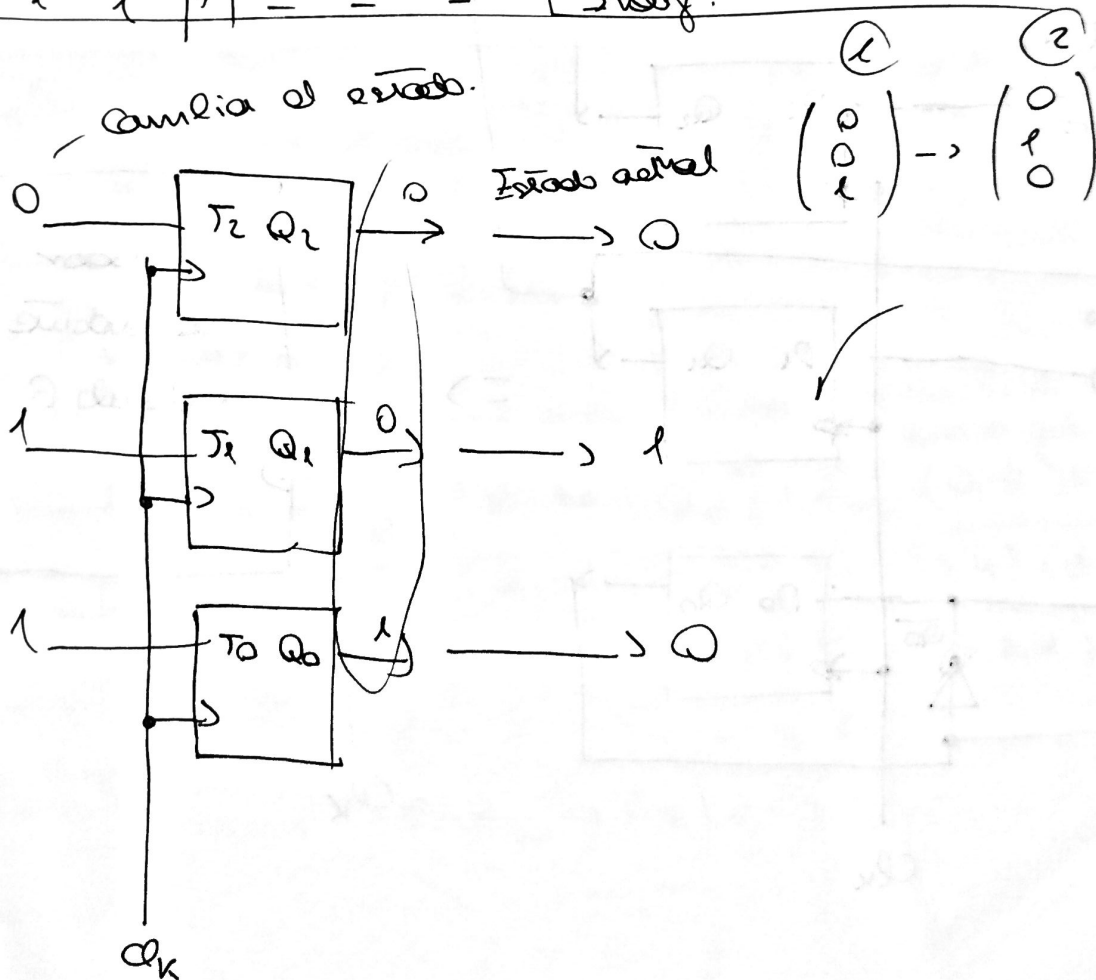 1 1 | 1 | - - - | Indef.
① ②
cambia el estado.
(0 0 1) -> (0 1 0)
0 T2 Q2 0 Estado actual -> 0
1 T1 Q1 0 -> 1
1 T0 Q0 1 -> 0
Clk